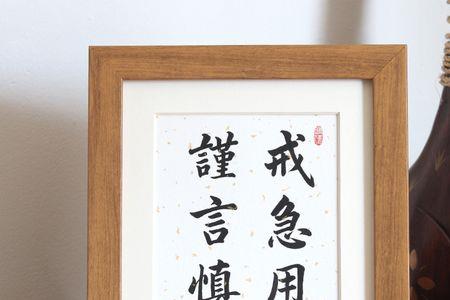 戒急用
謹言慎